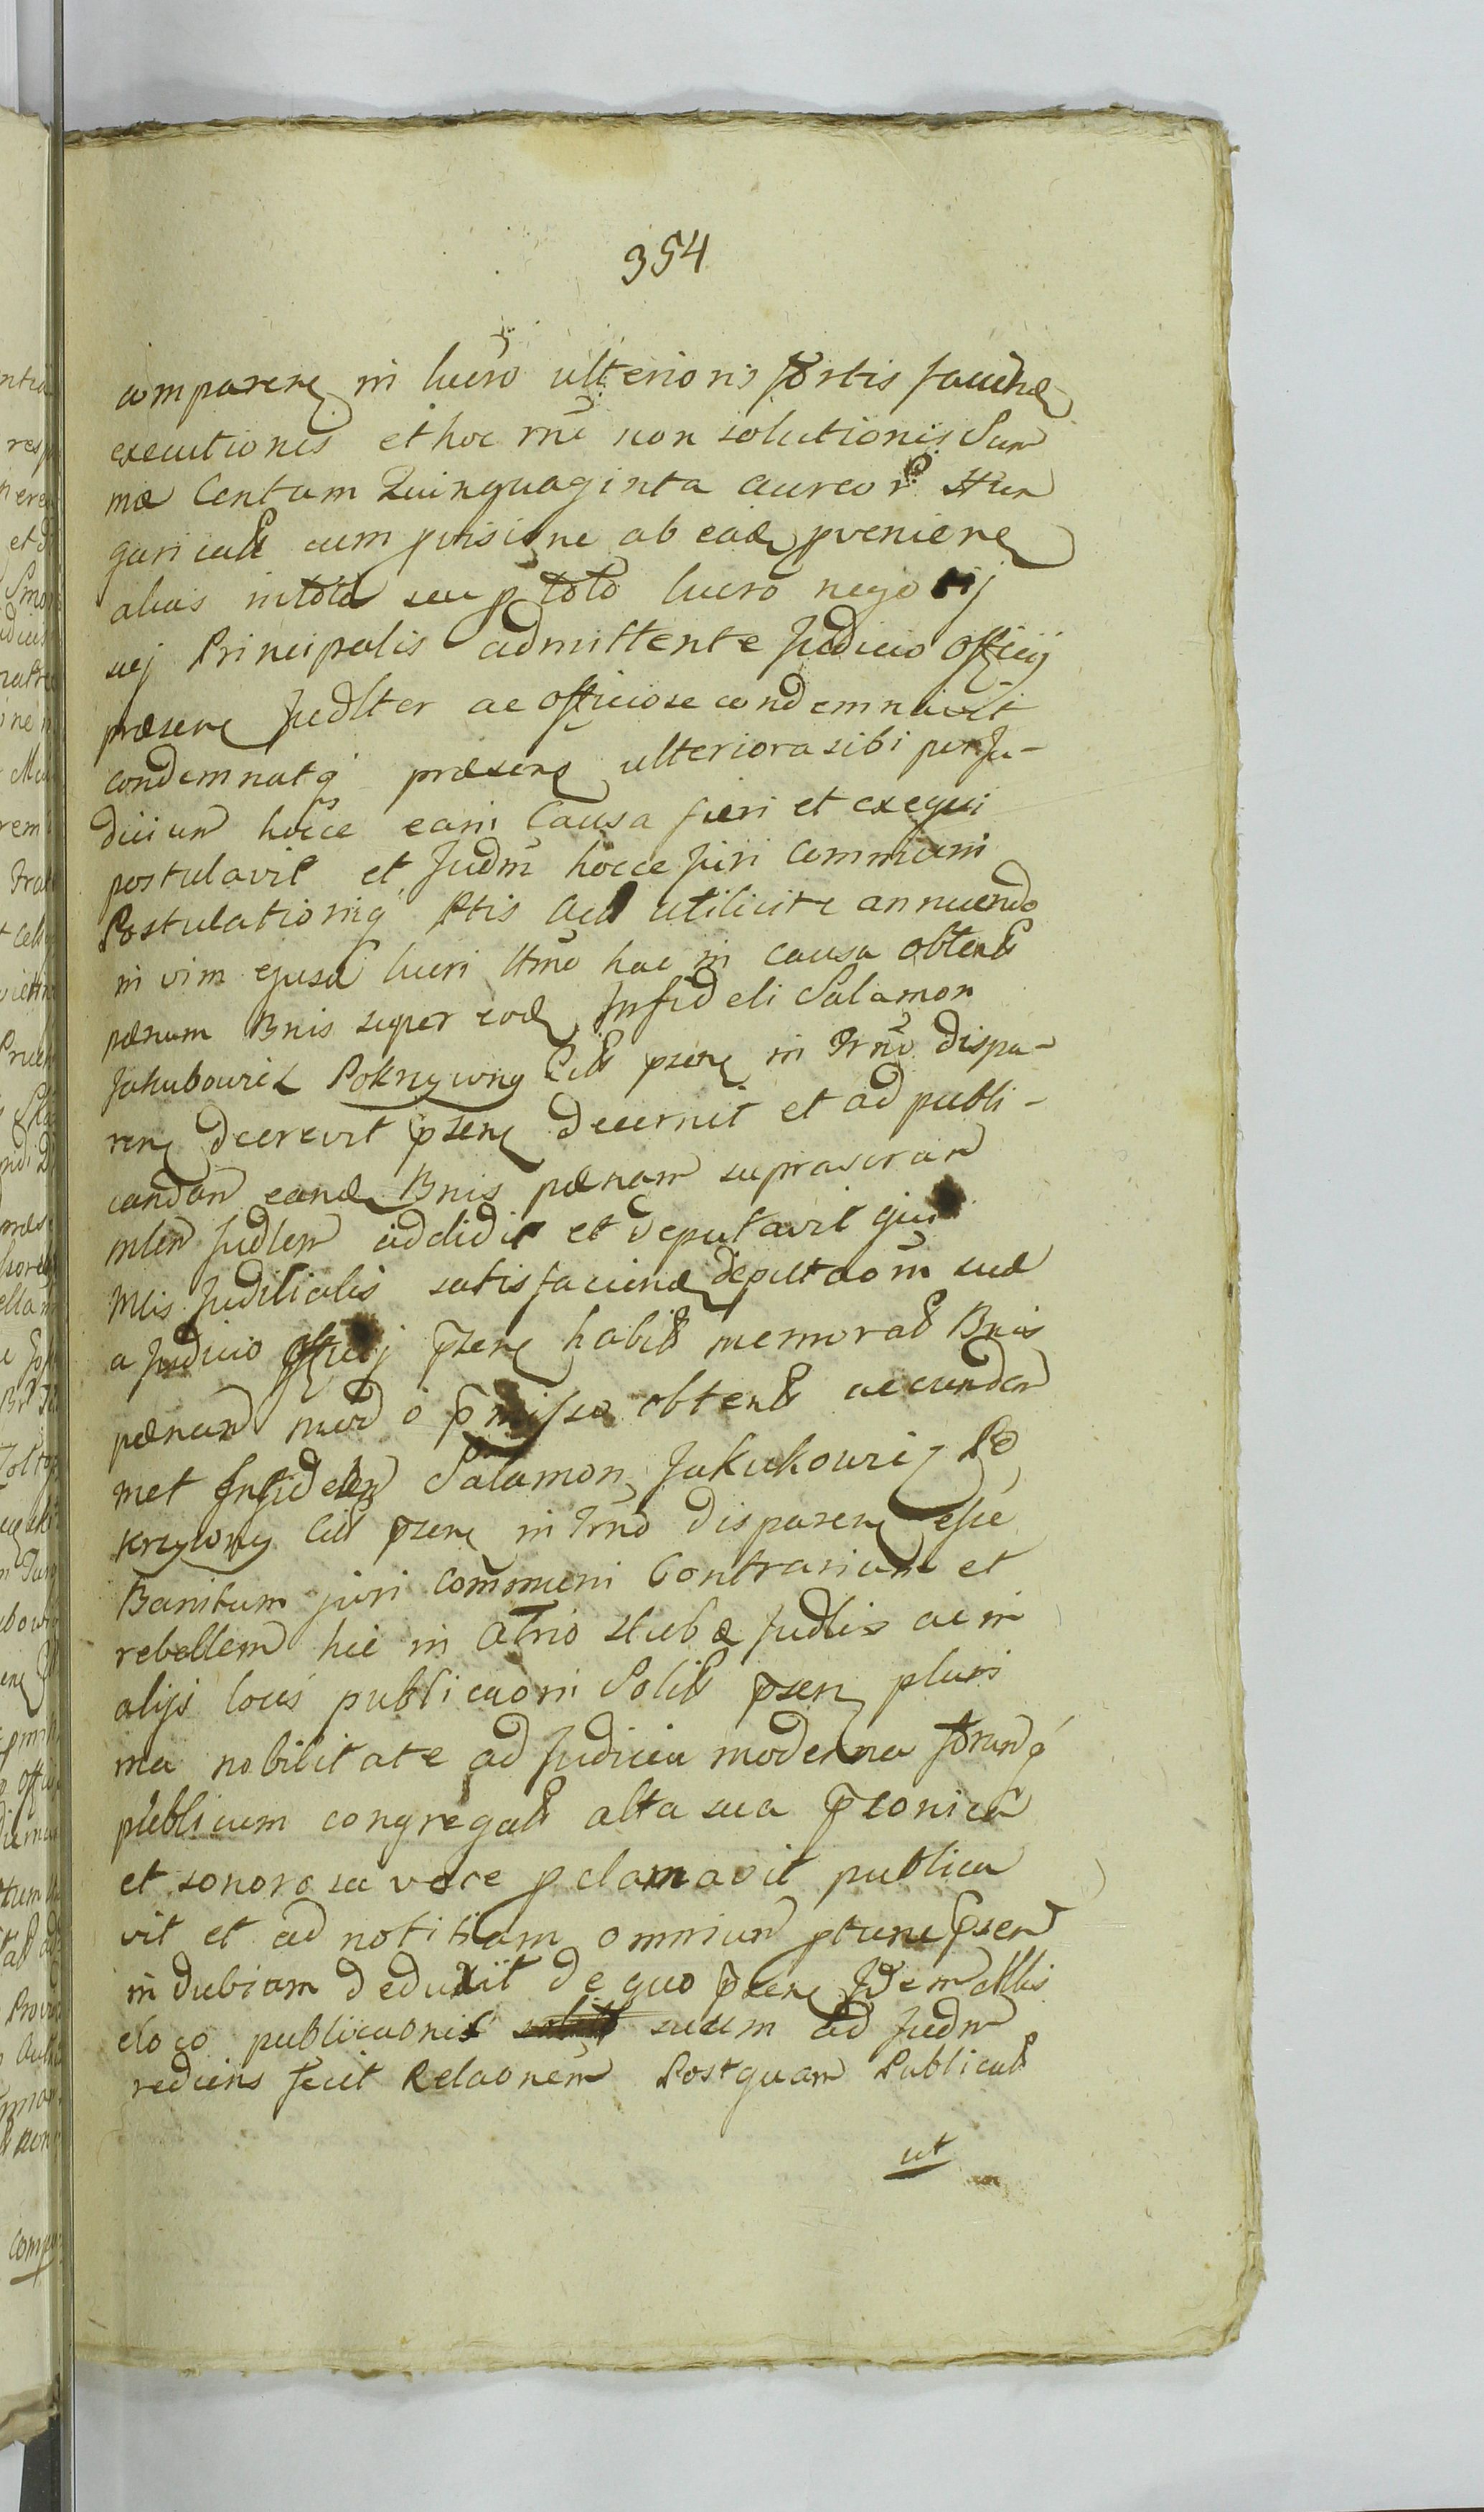 354
comparen in lucro ulterioris fortis faciend
executionis et hoc rne non solutionis Sum
mæ Centum Quinquaginta aureor Hun
garical cum pvisione ab ead pvenien
alias in toto seu p toto lucro negotij
sui Principalis admittente Judicio Officij
præsen Judlter ac officiose condemnavit
condemnatq præsens ulteriora sibi per Ju-
dicium hocce eani Causa fieri et exequi
postulavit et Judm hocce Juri Communi
Postulationiq Ptis Act utilicitæ annuendo
in vim ejusd lucri ttmo hac in Causa obtent
pænam Bnis super eod Infideli Salamon
Jakubowicz Pokrzywny Cit psen in Trno dispa-
ren decrevit psen decernit et ad publi-
candam eand Bnis pænam suprascran
mlem Judlem addidit et deputavit qui
Mlis Judicialis satisfaciend deputaom suæ
a Judicio Officij psen habit memorat Bnis
pænam modo pmisso obtent accundem
met Infidelem Salamon Jakukowicz Po
krzywny Cit psen in Trno disparen esse
Banitum juri Communi Contrarium et
rebellem hic in Atrio Stubæ Judlis ac in
alijs locis publicaoni Solit psen pluri
ma nobilitate ad Judicia moderna forumq
publicum congregat alta sua psonica
et sonorosa voce pclamavit publica
vit et ad notitiam omnium ptunc psen
indubiam deduxit de quo psen Idem Mlis
eloco publicaonis suum ad Judm
rediens fecit Relaonem Postquam Publicat
ut